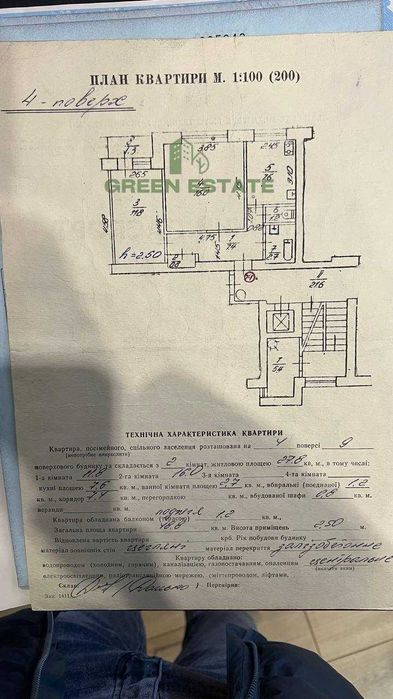 ПЛАН КВАРТИРИ М. 1:100 (200)
4 - поверх
GREEN ESTATE
265
3.65
245
3
11.8
4
16.0
5
7.6
310
6
1.2
h=2.50
4.75
1
7.4
7
2.7
0.8
II
21.6
I
5.4
ТЕХНІЧНА ХАРАКТЕРИСТИКА КВАРТИРИ
Квартира, посімейного, спільного заселення розташована на 4 поверсі 9
(непотрібне викреслити)
поверхового будинку та складається з 2 кімнат, житловою площею 27.8 кв. м., в тому числі:
1-а кімната 11.8 2-га кімната 16.0 3-тя кімната 4-та кімната
кухні площею 7.6 кв. м., ванної кімнати площею 2.7 кв. м., вбиральні (поєднаної) 1.2
кв. м., коридор 7.4 кв. м., перегородкою кв. м., вбудованої шафи 0.8 кв. м.
веранди кв. м.
Квартира обладнана балконом (лоджією) лоджія 1.2 кв. м.
Загальна площа квартири кв. м. Висота приміщень 250 м.
Відновлена вартість квартири крб. Рік побудови будинку
матеріал зовнішніх стін цегляні матеріал перекриття залізобетонне
Квартиру обладнано:
водопроводом (холодним, гарячим), каналізацією, газопостачанням, опаленням центральне
(вказати яким)
електроосвітленням, радіотрансляційною мережею, сміттєпроводом, ліфтами,
Склав Перевірив:
Зак. 1411